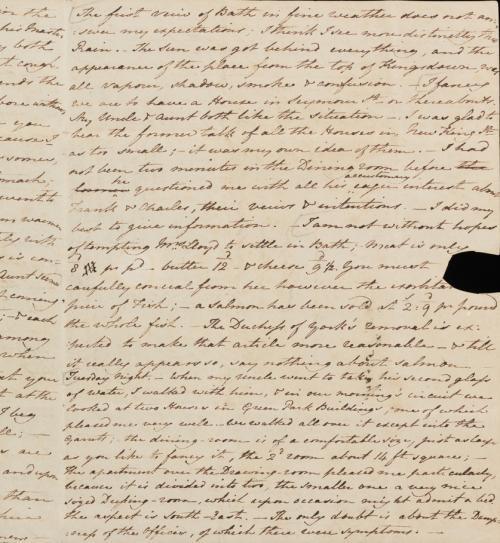 on the
by both
t cough
ends the
- you
cause I
sooner,
omach;
ly with
is con-
coming.
; - & each
among
when
at you
t at the
I beg
ll; -
s are
and upon
than
The first veiw of Bath in fine weather does not an:
:swer my expectations; I think I see more distinctly thro'
Rain. - The Sun was got behind everything, and the
appearance of the place from the top of Kingsdown, was
all vapour, shadow, smoke & confusion. - I fancy
we are to have a House in Seymour St or thereabouts.
My Uncle & Aunt both like the situation -. I was glad to
hear the former talk of all the Houses in New King St
as too small; - it was my own idea of them. - I had
not been two minutes in the Dining room before
he questioned me with all his accustomary eager interest about
Frank & Charles, their veiws & intentions. - I did my
best to give information. - I am not without hopes
of tempting Mrs Lloyd to settle in Bath; Meat is only
8d pr pd - butter 12d - & cheese 9½d. You must
carefully conceal from her however the exorbitant
price of Fish; - a salmon has been sold at 2s: 9d pr pound
the whole fish. - The Duchess of York's removal is ex:
:pected to make that article more reasonable - & till
it really appears so, say nothing about salmon. -
Tuesday night. - When my Uncle went to take his second glass
of water, I walked with him, & in our morning's circuit we
looked at two Houses in Green Park Buildings, one of which
pleased me very well. - We walked all over it except into the
Garrets; - the dining-room is of a comfortable size, just as large
as you like to fancy it, the 2d room about 14 ft square; -
The apartment over the Drawing-room pleased me particularly,
because it is divided into two, the smaller one a very nice
sized Dressing-room, which upon occasion might admit a bed.
the aspect is South-East. - The only doubt is about the Damp:
:ness of the Offices, of which there were symptoms. -